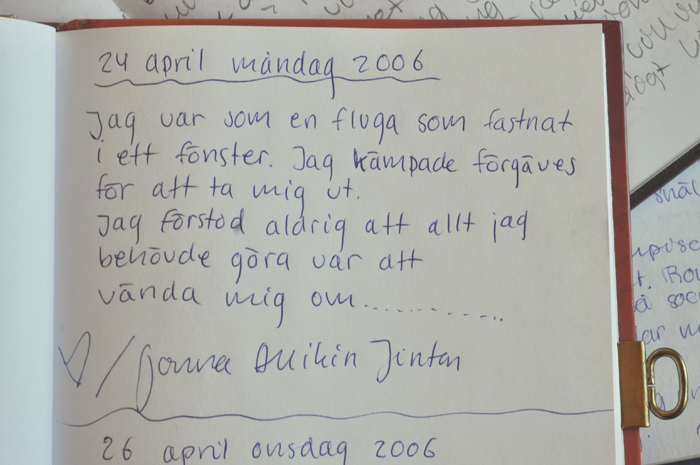 24 april måndag 2006
Jag var som en fluga som fastnat
i ett fönster. Jag kämpade förgäves
för att ta mig ut.
Jag förstod aldrig att allt jag
behövde göra var att
vända mig om..............
/Jonna Jinton
26 april onsdag 2006